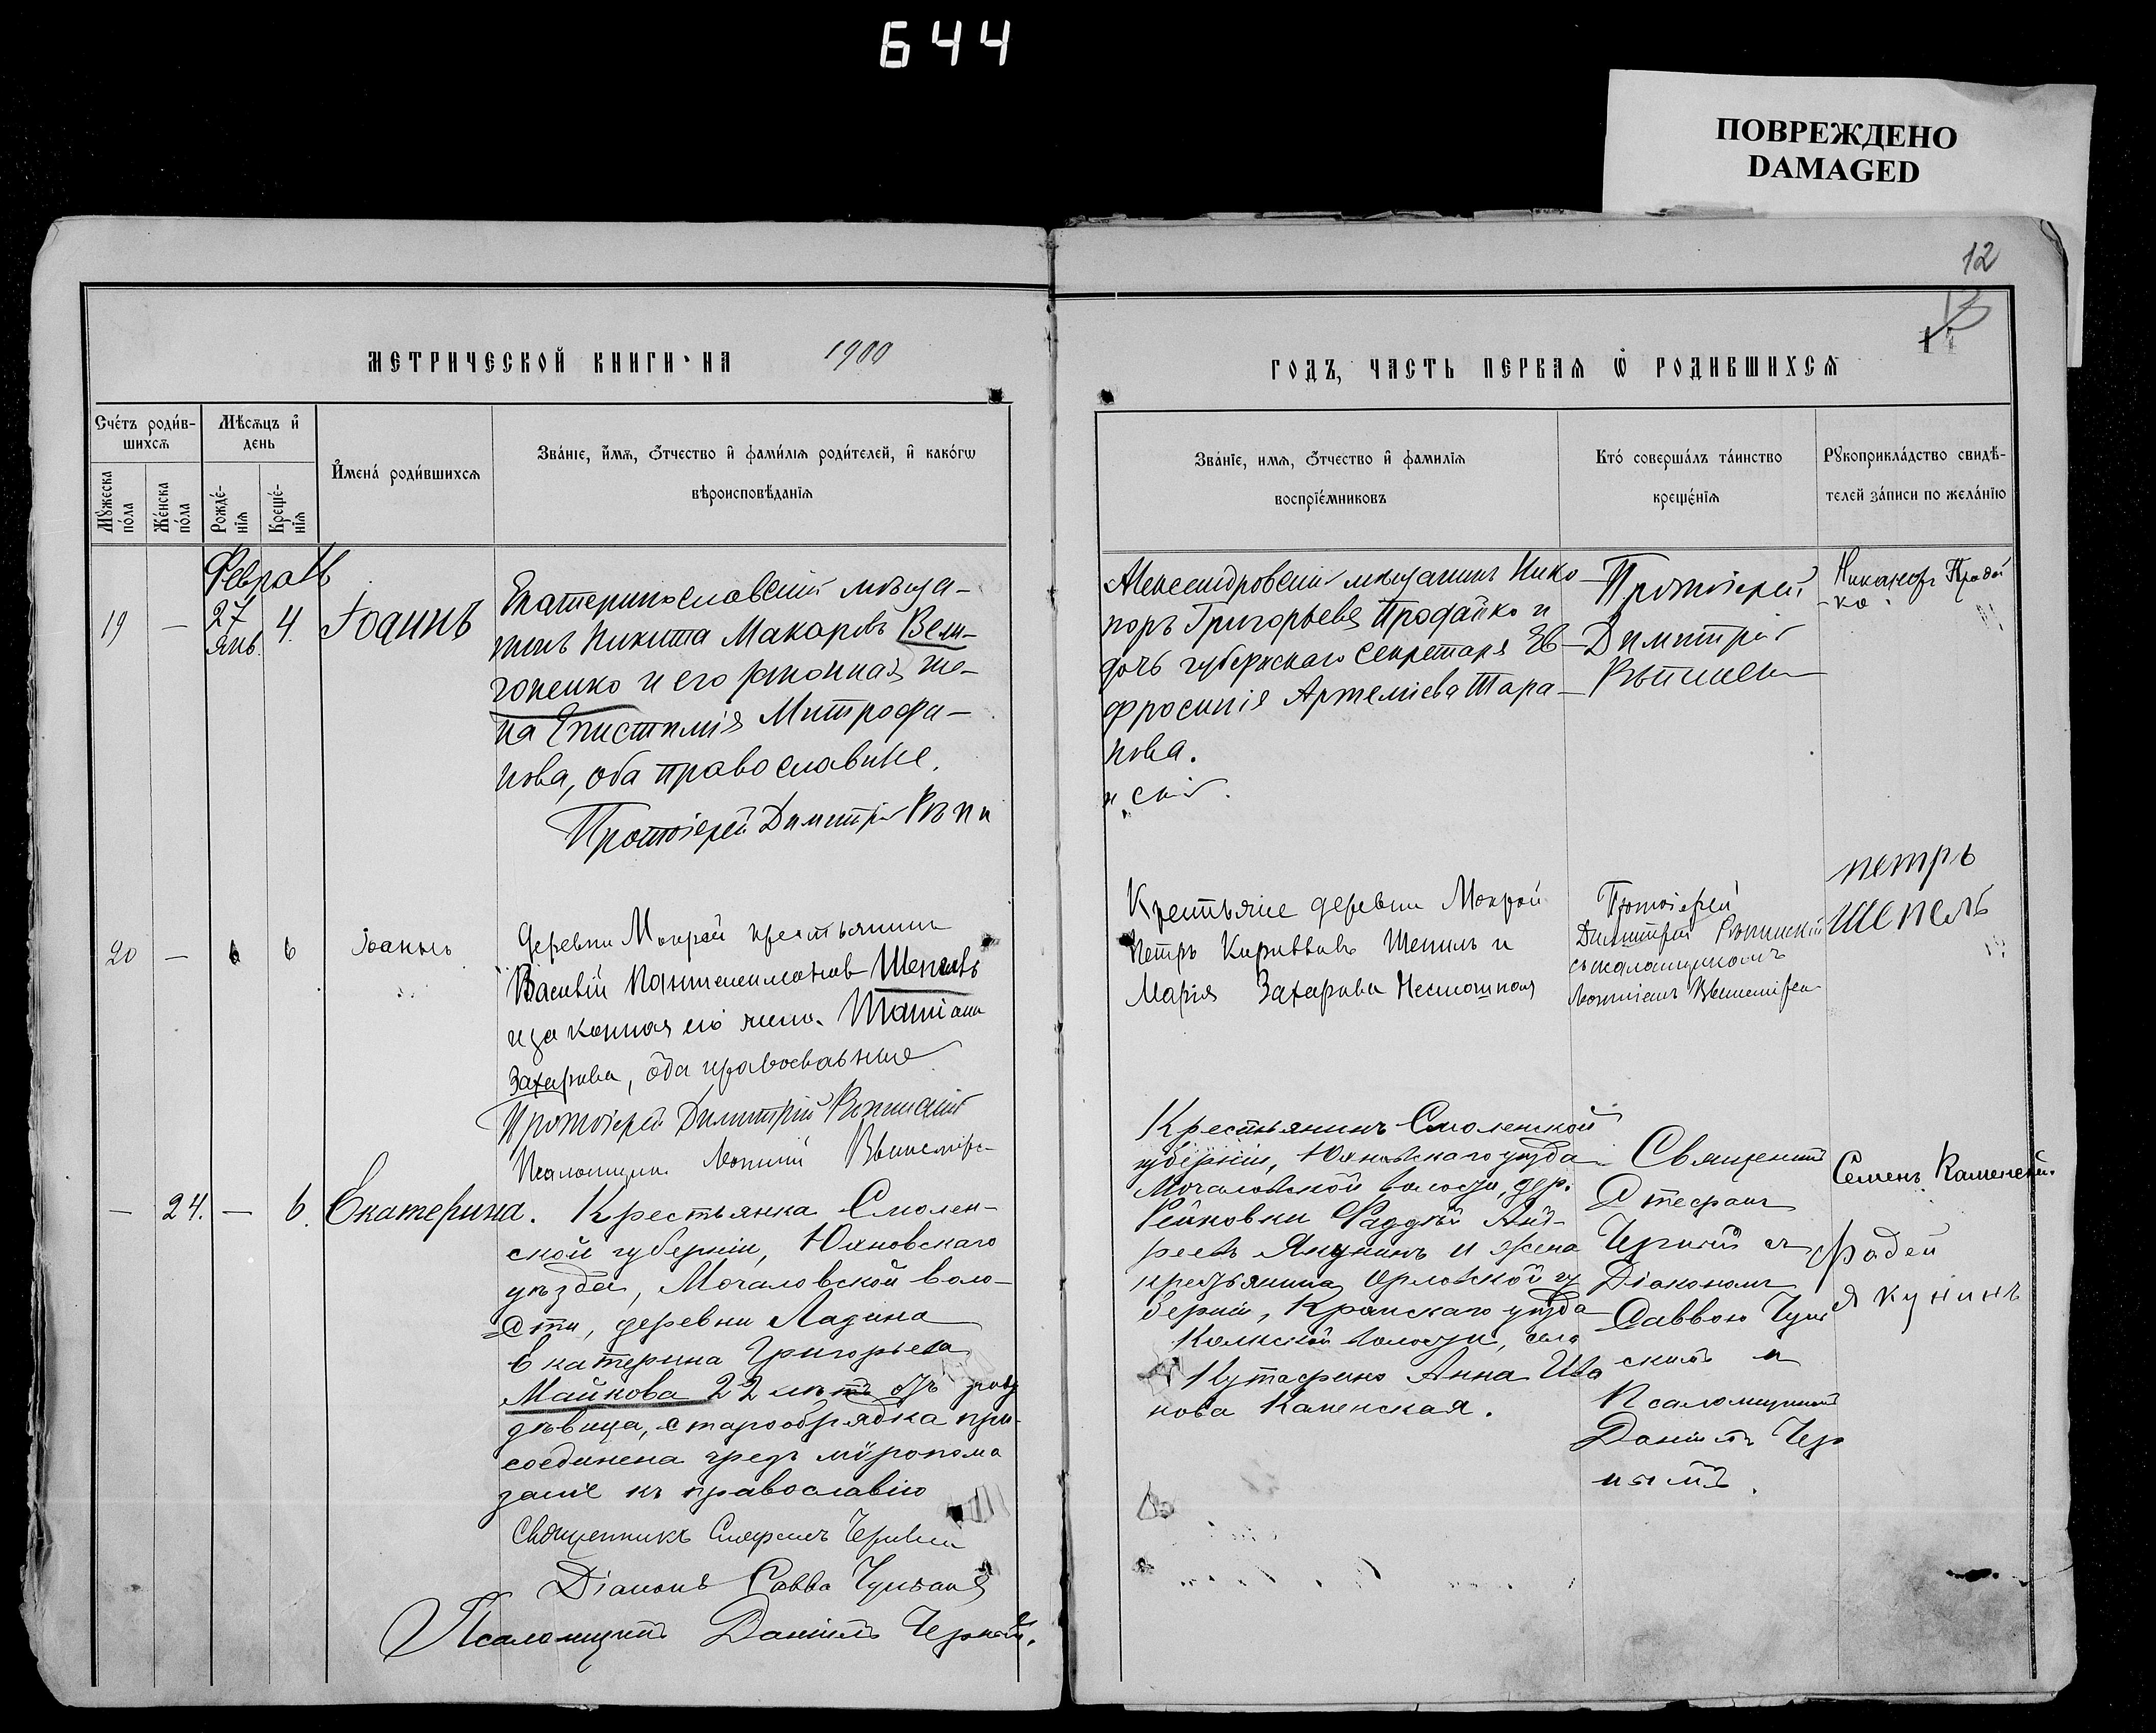 644
ПОВРЕЖДЕНО
DAMAGED
12
МЕТРИЧЕСКОЙ КНИГИ НА 1900
ГОДЪ, ЧАСТЬ ПЕРВАЯ Ѡ РОДИВШИХСѦ
Счéтъ роди́в-
шихсѧ
Мѣсѧцъ и҆
день
И҆мена́ роди́вшихсѧ
Зва́нїе, и҆́мѧ, ѻ҆́тчество и҆ фами́лїѧ роди́телей, и҆ како́гѡ
вѣроисповѣ́данїѧ
Мꙋ́жеска
по́ла
Же́нска
по́ла
Рожде́-
нїѧ
Креще́-
нїѧ
Зва́нїе, имѧ, ѻ҆́тчество и҆ фамилїѧ
воспрїе́мниковъ
Кто́ соверша́лъ та́инство
креще́нїѧ
Рꙋкоприкла́дство свидѣ́-
телей за́писи по жела́нїю
Февраль
19
—
27
янв.
4.
Іоаннъ
Екатеринославскій мѣща-
нинъ Никита Макаровъ Вели-
гоненко и его законная же-
на Епистимія Митрофа-
нова, оба православные.
Протоіерей Димитрій
Александровскій мѣщанинъ Нико-
норъ Григорьевъ Продайко и
дочь губернскаго секретаря Ев-
фросинія Артеміева Тара-
нова.
Протоіерей
Димитрій
Никаноръ Продай
-ко
20
—
6
6
Іоаннъ
Деревни Мокрой крестьянинъ
Василій Пантелеимоновъ Шепель
и законная его жена Татіана
Захарова, оба православные
Протоіерей Димитрій
Псаломщикъ
Крестьяне деревни Мокрой
Петръ Кирилловъ Шепель и
Марія Захарова
Протоіерей
Димитрій
съ псаломщикомъ
петръ
Шепель
—
24.
—
6.
Екатерина.
Крестьянка Смолен-
ской губерніи, Юхновскаго
уѣзда, Мочаловской воло-
сти, деревни Ладина
Екатерина Григорьева
Майкова 22 лѣтъ отъ роду
дѣвица, старообрядка при-
соединена чрезъ мѵропома
заніе къ православію
Священникъ Стефанъ Черный
Діаконъ Савва
Псаломщикъ Даніилъ Черный.
Крестьянинъ Смоленской
губерніи, Юхновскаго уѣзда
Мочаловской волости, дер.
Рейновки Фаддей Анд-
реевъ Якунинъ и жена
крестьянина Орловской гу
берніи, Кромскаго уѣзда
волости, село
Кутафино Анна Ива
нова Каменская.
Священникъ
Стефанъ
Черный съ
Діакономъ
Саввою
скимъ и
Псаломщикомъ
Даніиломъ Чер
нымъ.
Семенъ Каменскій.
Фадей
якунинъ